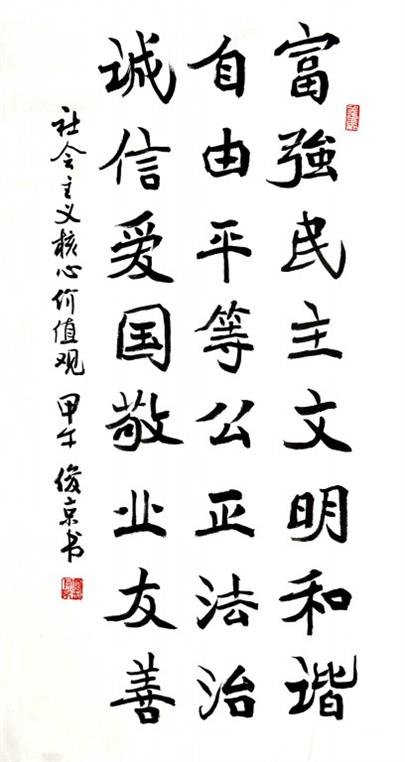 富強民主文明和谐
自由平等公正法治
诚信爱国敬业友善
社会主义核心价值观 甲午 俊京书